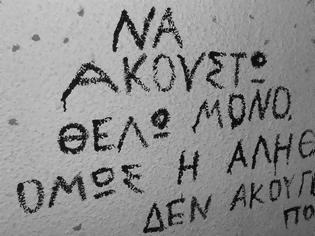 ΝΑ
ΑΚΟΥΣΤΩ
ΘΕΛΩ ΜΟΝΟ.
ΟΜΩΣ Η ΑΛΗΘ
ΔΕΝ ΑΚΟΥΓΕ
ΠΟ